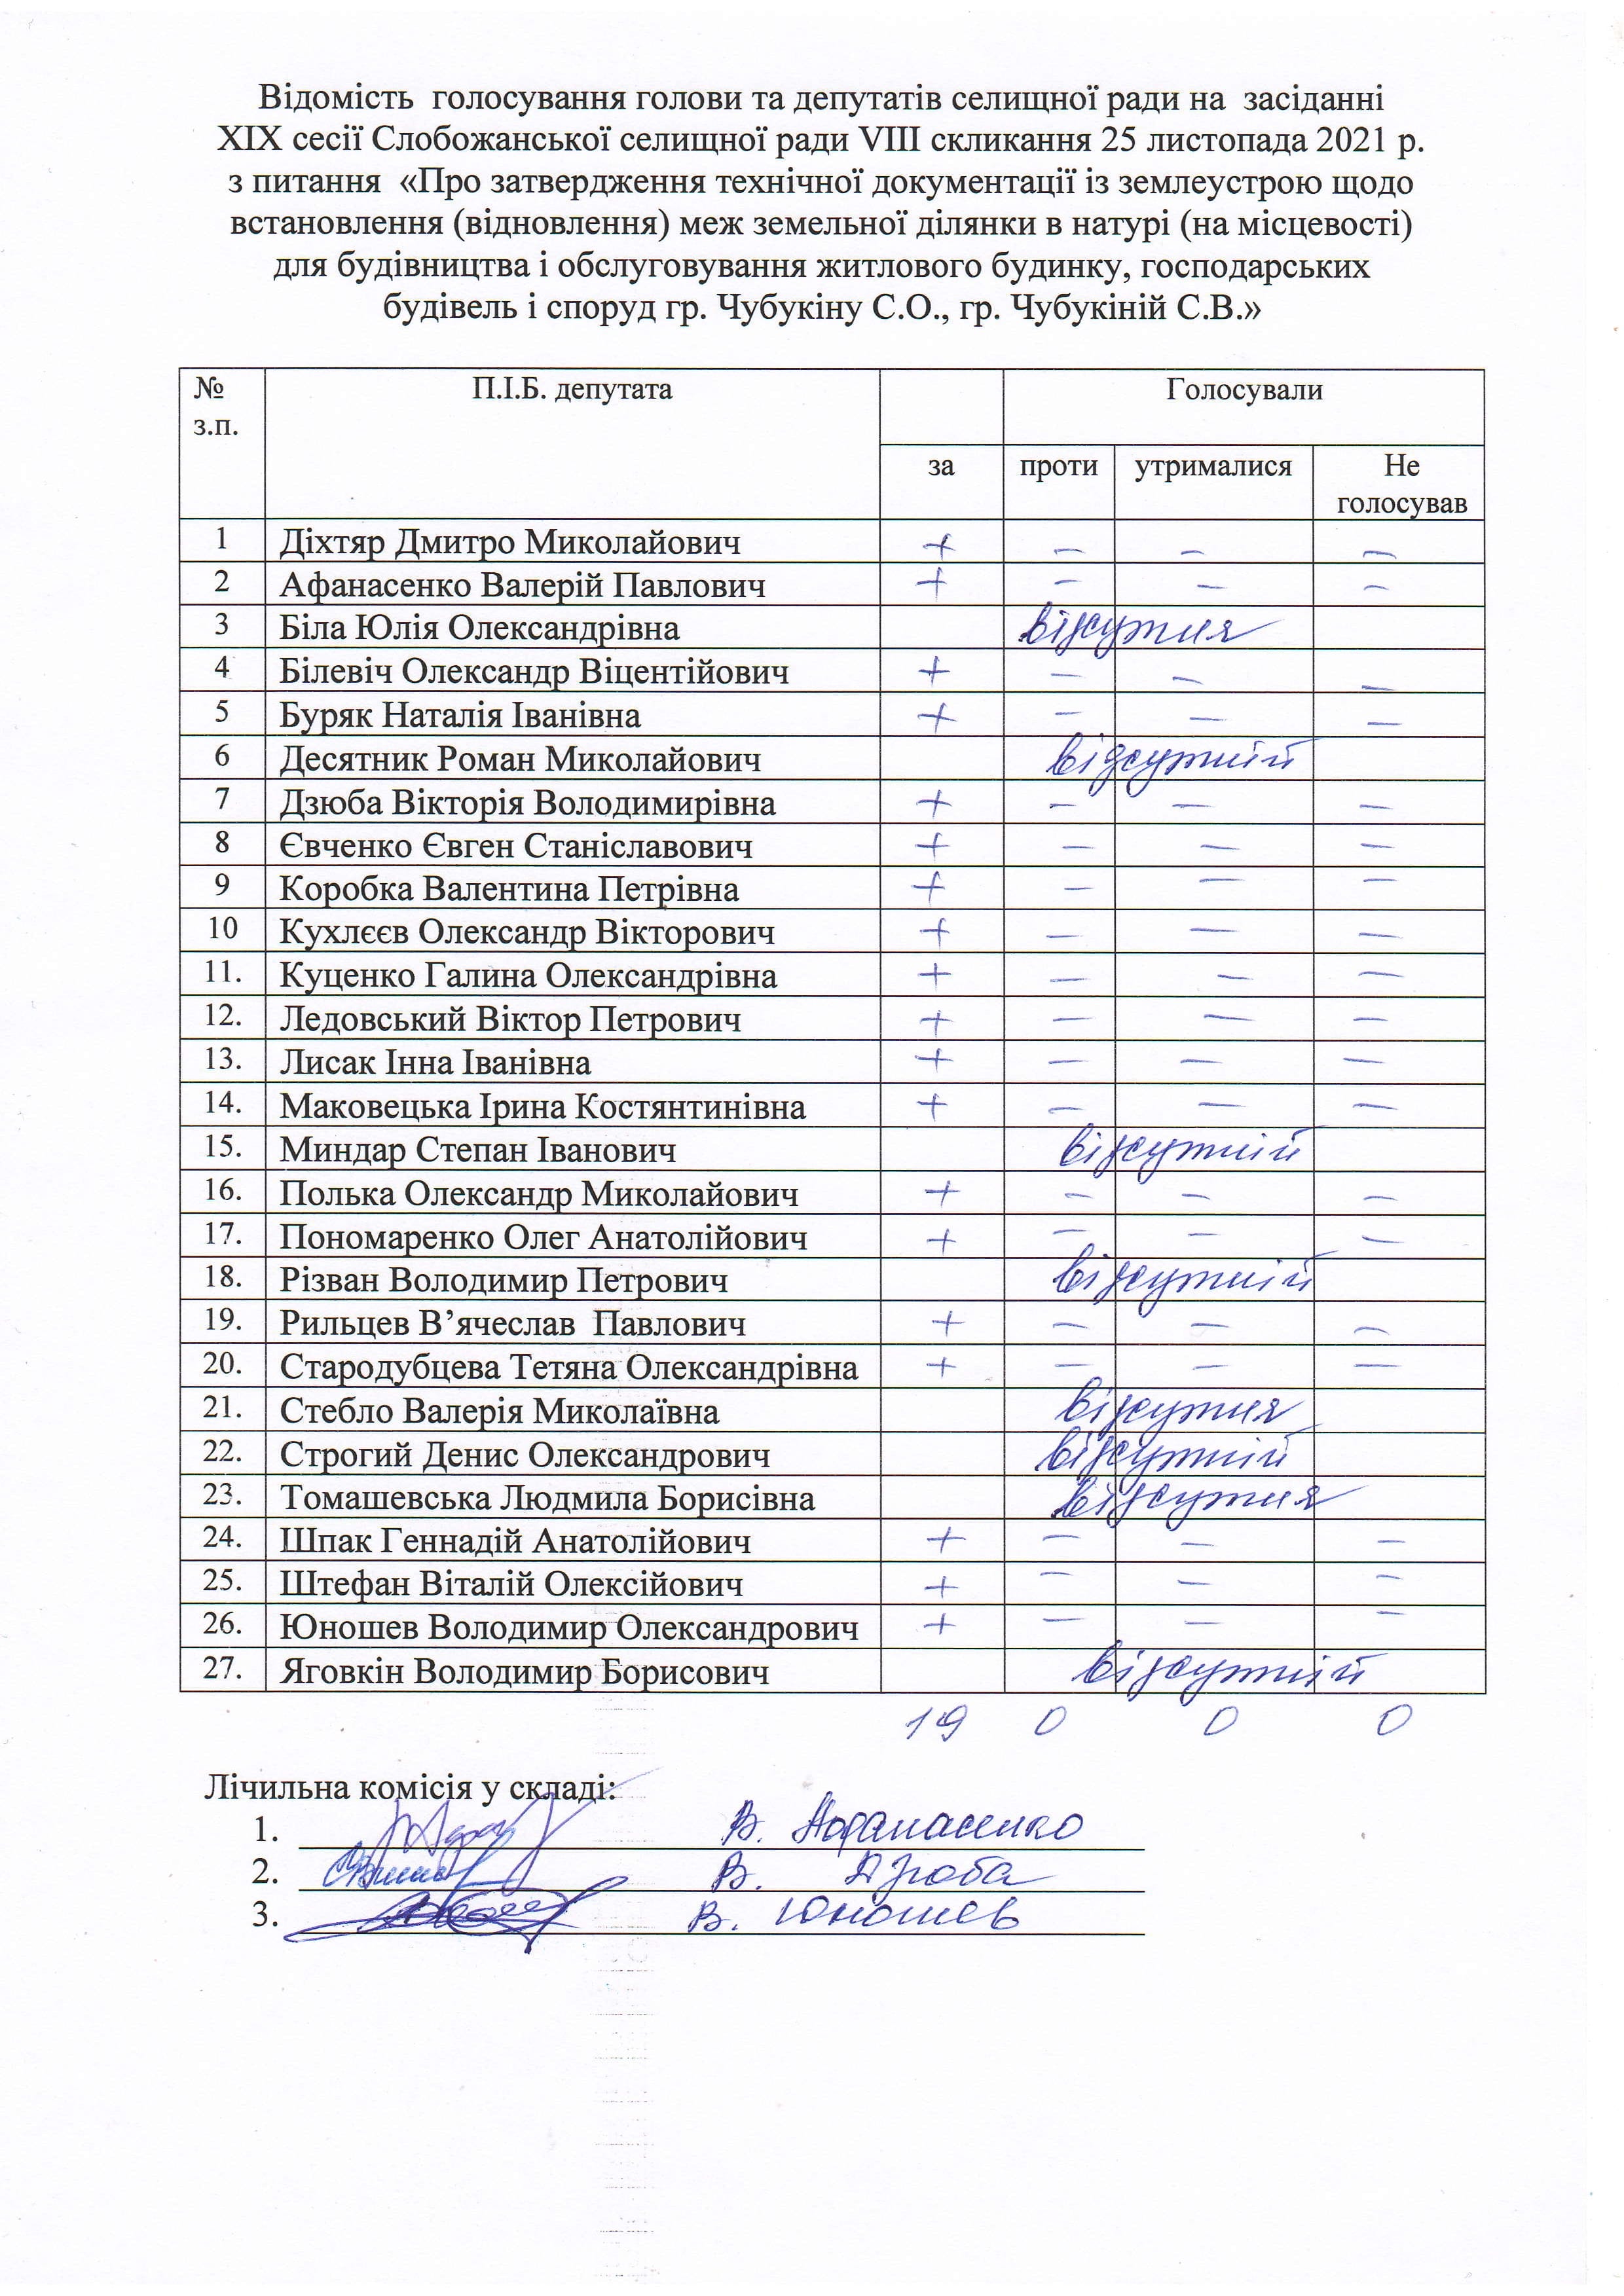 Відомість голосування голови та депутатів селищної ради на засіданні
XIX сесії Слобожанської селищної ради VIII скликання 25 листопада 2021 р.
з питання «Про затвердження технічної документації із землеустрою щодо
встановлення (відновлення) меж земельної ділянки в натурі (на місцевості)
для будівництва і обслуговування житлового будинку, господарських
будівель і споруд гр. Чубукіну С.О., гр. Чубукіній С.В.»
№ з.п. П.І.Б. депутата Голосували
за проти утрималися Не голосував
1 Діхтяр Дмитро Миколайович + – – –
2 Афанасенко Валерій Павлович + – – –
3 Біла Юлія Олександрівна відсутня
4 Білевіч Олександр Віцентійович + – – –
5 Буряк Наталія Іванівна + – – –
6 Десятник Роман Миколайович відсутній
7 Дзюба Вікторія Володимирівна + – – –
8 Євченко Євген Станіславович + – – –
9 Коробка Валентина Петрівна + – – –
10 Кухлєєв Олександр Вікторович + – – –
11. Куценко Галина Олександрівна + – – –
12. Ледовський Віктор Петрович + – – –
13. Лисак Інна Іванівна + – – –
14. Маковецька Ірина Костянтинівна + – – –
15. Миндар Степан Іванович відсутній
16. Полька Олександр Миколайович + – – –
17. Пономаренко Олег Анатолійович + – – –
18. Різван Володимир Петрович відсутній
19. Рильцев В’ячеслав Павлович + – – –
20. Стародубцева Тетяна Олександрівна + – – –
21. Стебло Валерія Миколаївна відсутня
22. Строгий Денис Олександрович відсутній
23. Томашевська Людмила Борисівна відсутня
24. Шпак Геннадій Анатолійович + – – –
25. Штефан Віталій Олексійович + – – –
26. Юношев Володимир Олександрович + – – –
27. Яговкін Володимир Борисович відсутній
19 0 0 0
Лічильна комісія у складі:
1. В. Афанасенко
2. В. Дзюба
3. В. Юношев